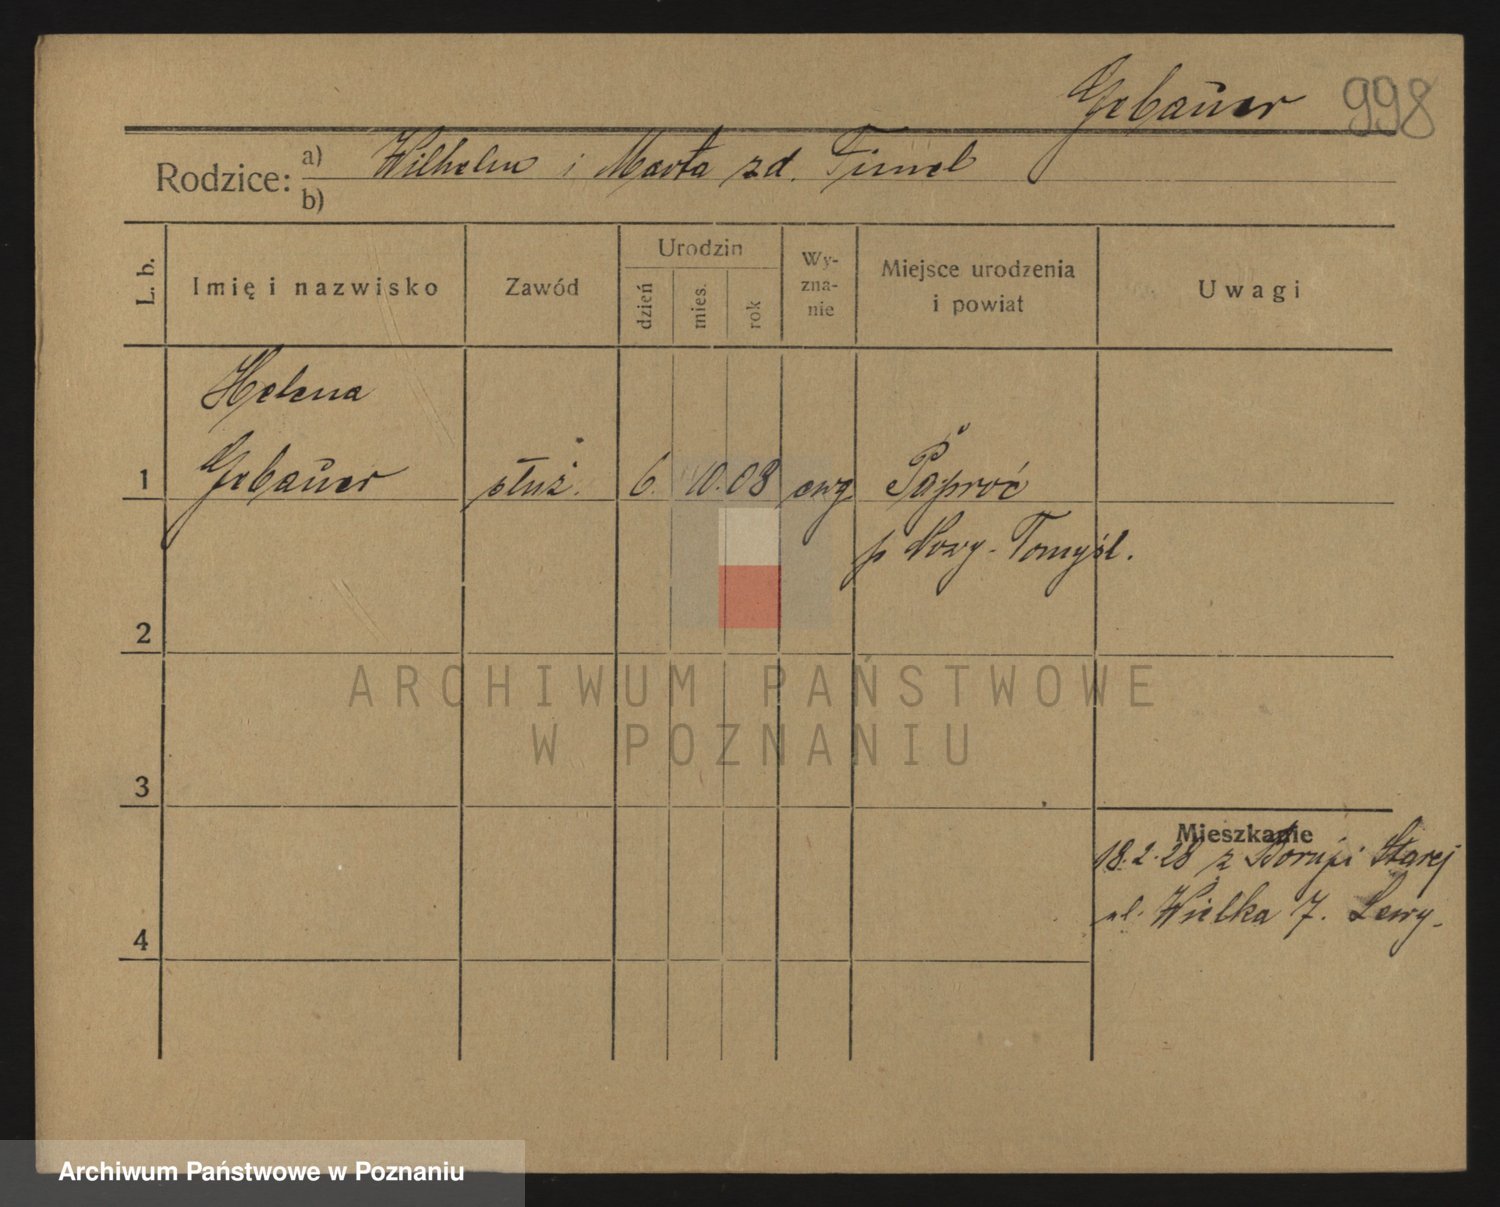 Gebauer 998
Rodzice: a) Wilhelm i Marta zd.
b)
L. b.
Imię i nazwisko
Zawód
Urodzin
dzień
mies.
rok
Wy-
zna-
nie
Miejsce urodzenia
i powiat
Uwagi
Helena
1 Gebauer służ. 6. 10. 08 ewg Paproć
p Nowy-Tomyśl.
2
ARCHIWUM PAŃSTWOWE
W POZNANIU
3
Mieszkanie
18.2.28 z Borui Starej
4 ul. Wielka 7. Lewy.
Archiwum Państwowe w Poznaniu